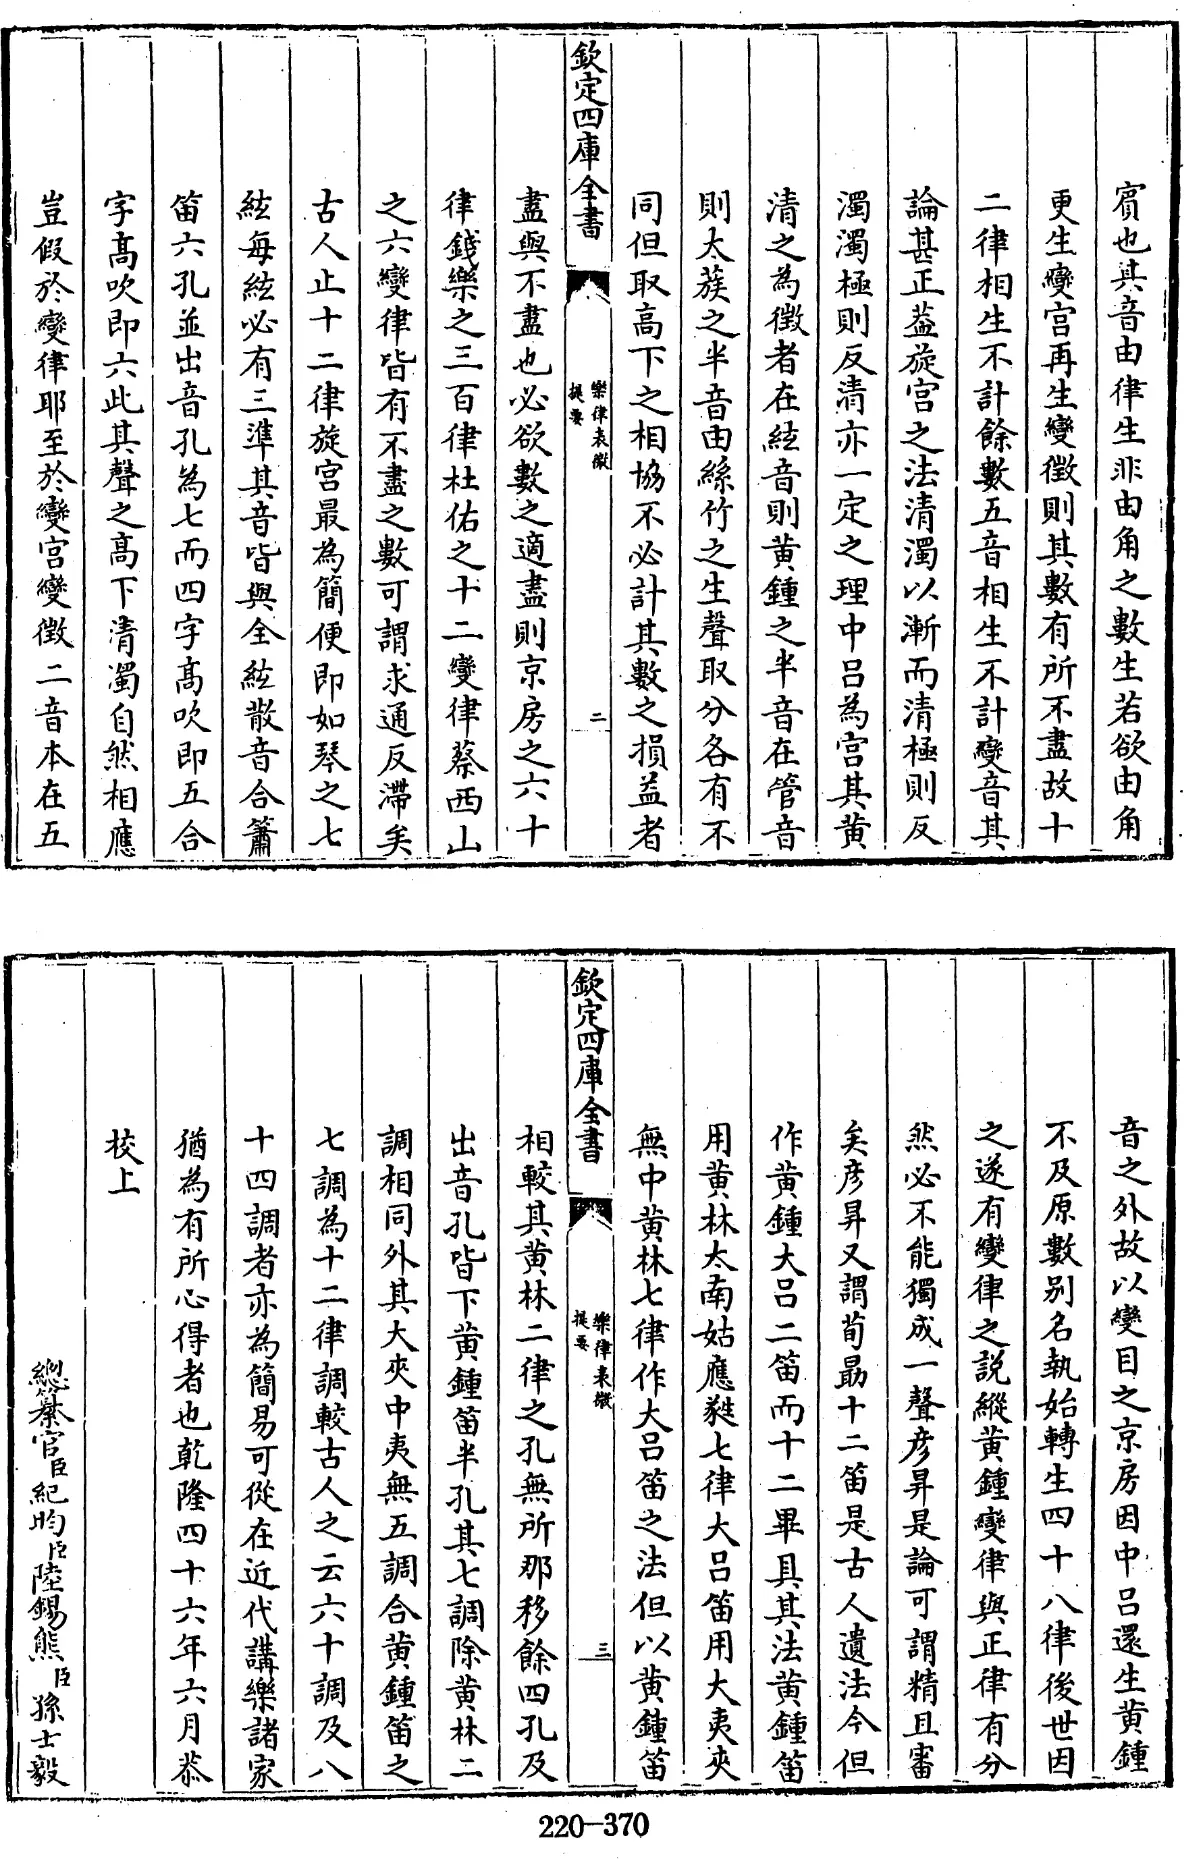 賔也其音由律生非由角之數生若欲由角
更生變宫再生變徴則其數有所不盡故十
二律相生不計餘數五音相生不計變音其
論甚正葢旋宫之法清濁以漸而清極則反
濁濁極則反清亦一定之理中吕為宫其黄
清之為徴者在絃音則黄鍾之半音在管音
則太蔟之半音由絲竹之生聲取分各有不
同但取高下之相協不必計其數之損益者
欽定四庫全書
樂律表微
提要
二
盡與不盡也必欲數之適盡則京房之六十
律錢樂之三百律杜佑之十二變律蔡西山
之六變律皆有不盡之數可謂求通反滯矣
古人止十二律旋宫最為簡便即如琴之七
絃每絃必有三準其音皆與全絃散音合簫
笛六孔並出音孔為七而四字髙吹即五合
字髙吹即六此其聲之髙下清濁自然相應
豈假於變律耶至於變宫變徴二音本在五
音之外故以變目之京房因中吕還生黄鍾
不及原數别名執始轉生四十八律後世因
之遂有變律之説縱黄鍾變律與正律有分
然必不能獨成一聲彦昇是論可謂精且審
矣彦昇又謂荀勗十二笛是古人遺法今但
作黄鍾大吕二笛而十二畢具其法黄鍾笛
用黄林太南姑應蕤七律大吕笛用大夷夾
無中黄林七律作大吕笛之法但以黄鍾笛
欽定四庫全書
樂律表微
提要
三
相較其黄林二律之孔無所那移餘四孔及
出音孔皆下黄鍾笛半孔其七調除黄林二
調相同外其大夾中夷無五調合黄鍾笛之
七調為十二律調較古人之云六十調及八
十四調者亦為簡易可從在近代講樂諸家
猶為有所心得者也乾隆四十六年六月恭
校上
總纂官臣紀昀臣陸錫熊臣孫士毅
220-370